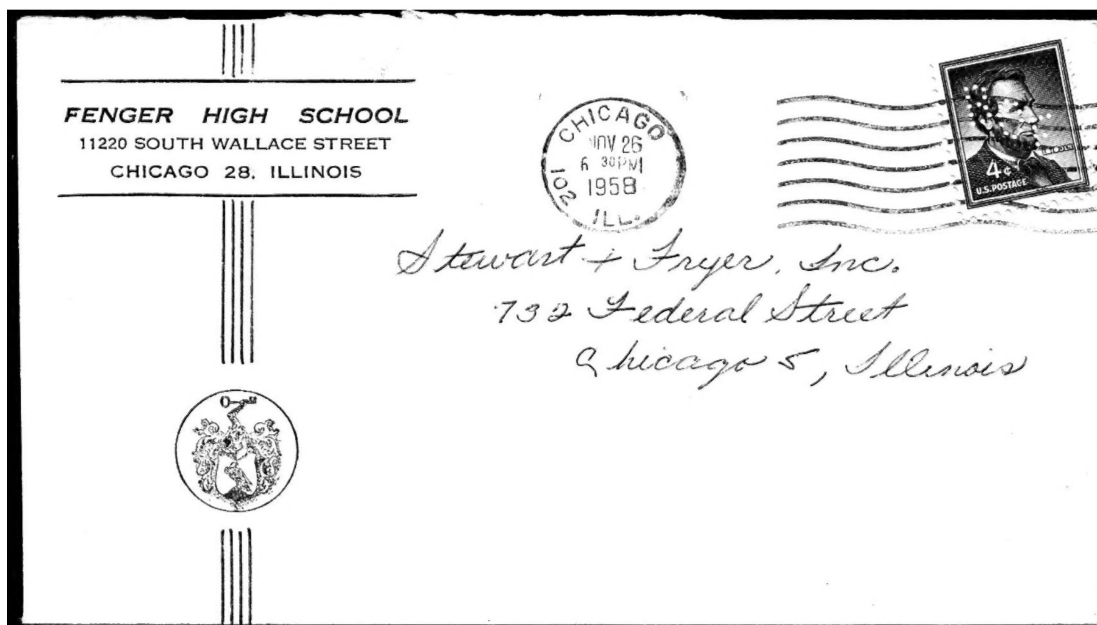 FENGER HIGH SCHOOL
11220 SOUTH WALLACE STREET
CHICAGO 28, ILLINOIS
CHICAGO
NOV 26
6 30 PM
1958
102 ILL.
4¢
U.S. POSTAGE
Stewart + Fryer, Inc.
732 Federal Street
Chicago 5, Illinois